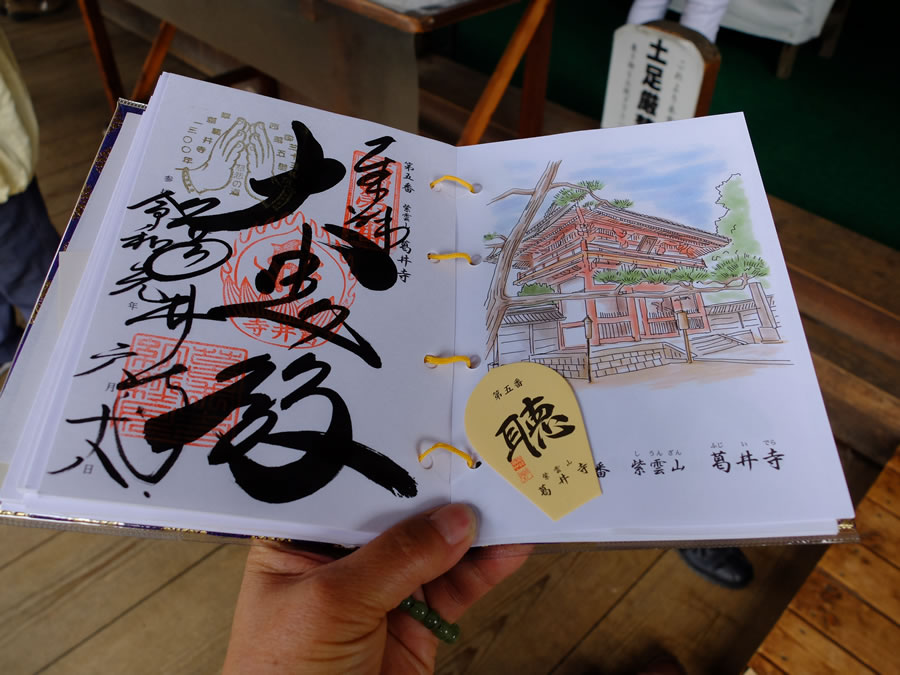 土足厳
一三〇〇年
第五番 紫雲山 葛井寺
奉拝
大悲殿
葛井寺
令和元年
六月
日
第五番
聴
紫雲山
葛井寺
しうんざん ふじいでら
番 紫雲山 葛井寺